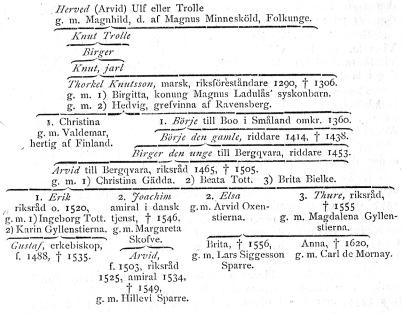 Herved (Arvid) Ulf eller Trolle
g. m. Magnhild, d. af Magnus Minnesköld, Folkunge.
Knut Trolle
Birger
Knut, jarl
Thorkel Knutsson, marsk, riksföreståndare 1290, † 1306.
g. m. 1) Birgitta, konung Magnus Ladulås' syskonbarn.
g. m. 2) Hedvig, grefvinna af Ravensberg.
1. Christina
g. m. Valdemar,
hertig af Finland.
1. Börje till Boo i Småland omkr. 1360.
Börje den gamle, riddare 1414, † 1438.
Birger den unge till Bergqvara, riddare 1453.
Arvid till Bergqvara, riksråd 1465, † 1505.
g. m. 1) Christina Gädda. 2) Beata Tott. 3) Brita Bielke.
1. Erik
riksråd o. 1520,
g. m. 1) Ingeborg Tott.
2) Karin Gyllenstierna.
Gustaf, erkebiskop,
f. 1488, † 1535.
2. Joachim
amiral i dansk
tjenst, † 1546.
g. m. Margareta
Skofve.
Arvid,
f. 1503, riksråd
1525, amiral 1534,
† 1549,
g. m. Hillevi Sparre.
2. Elsa
g. m. Arvid Oxen-
stierna.
Brita, † 1556,
g. m. Lars Siggesson
Sparre.
3. Thure, riksråd,
† 1555
g. m. Magdalena Gyllen-
stierna.
Anna, † 1620,
g. m. Carl de Mornay.